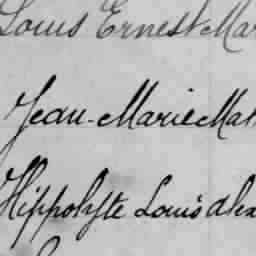 Louis Ernest Mar
Jean-Marie Mat
Hippolyte Louis alex